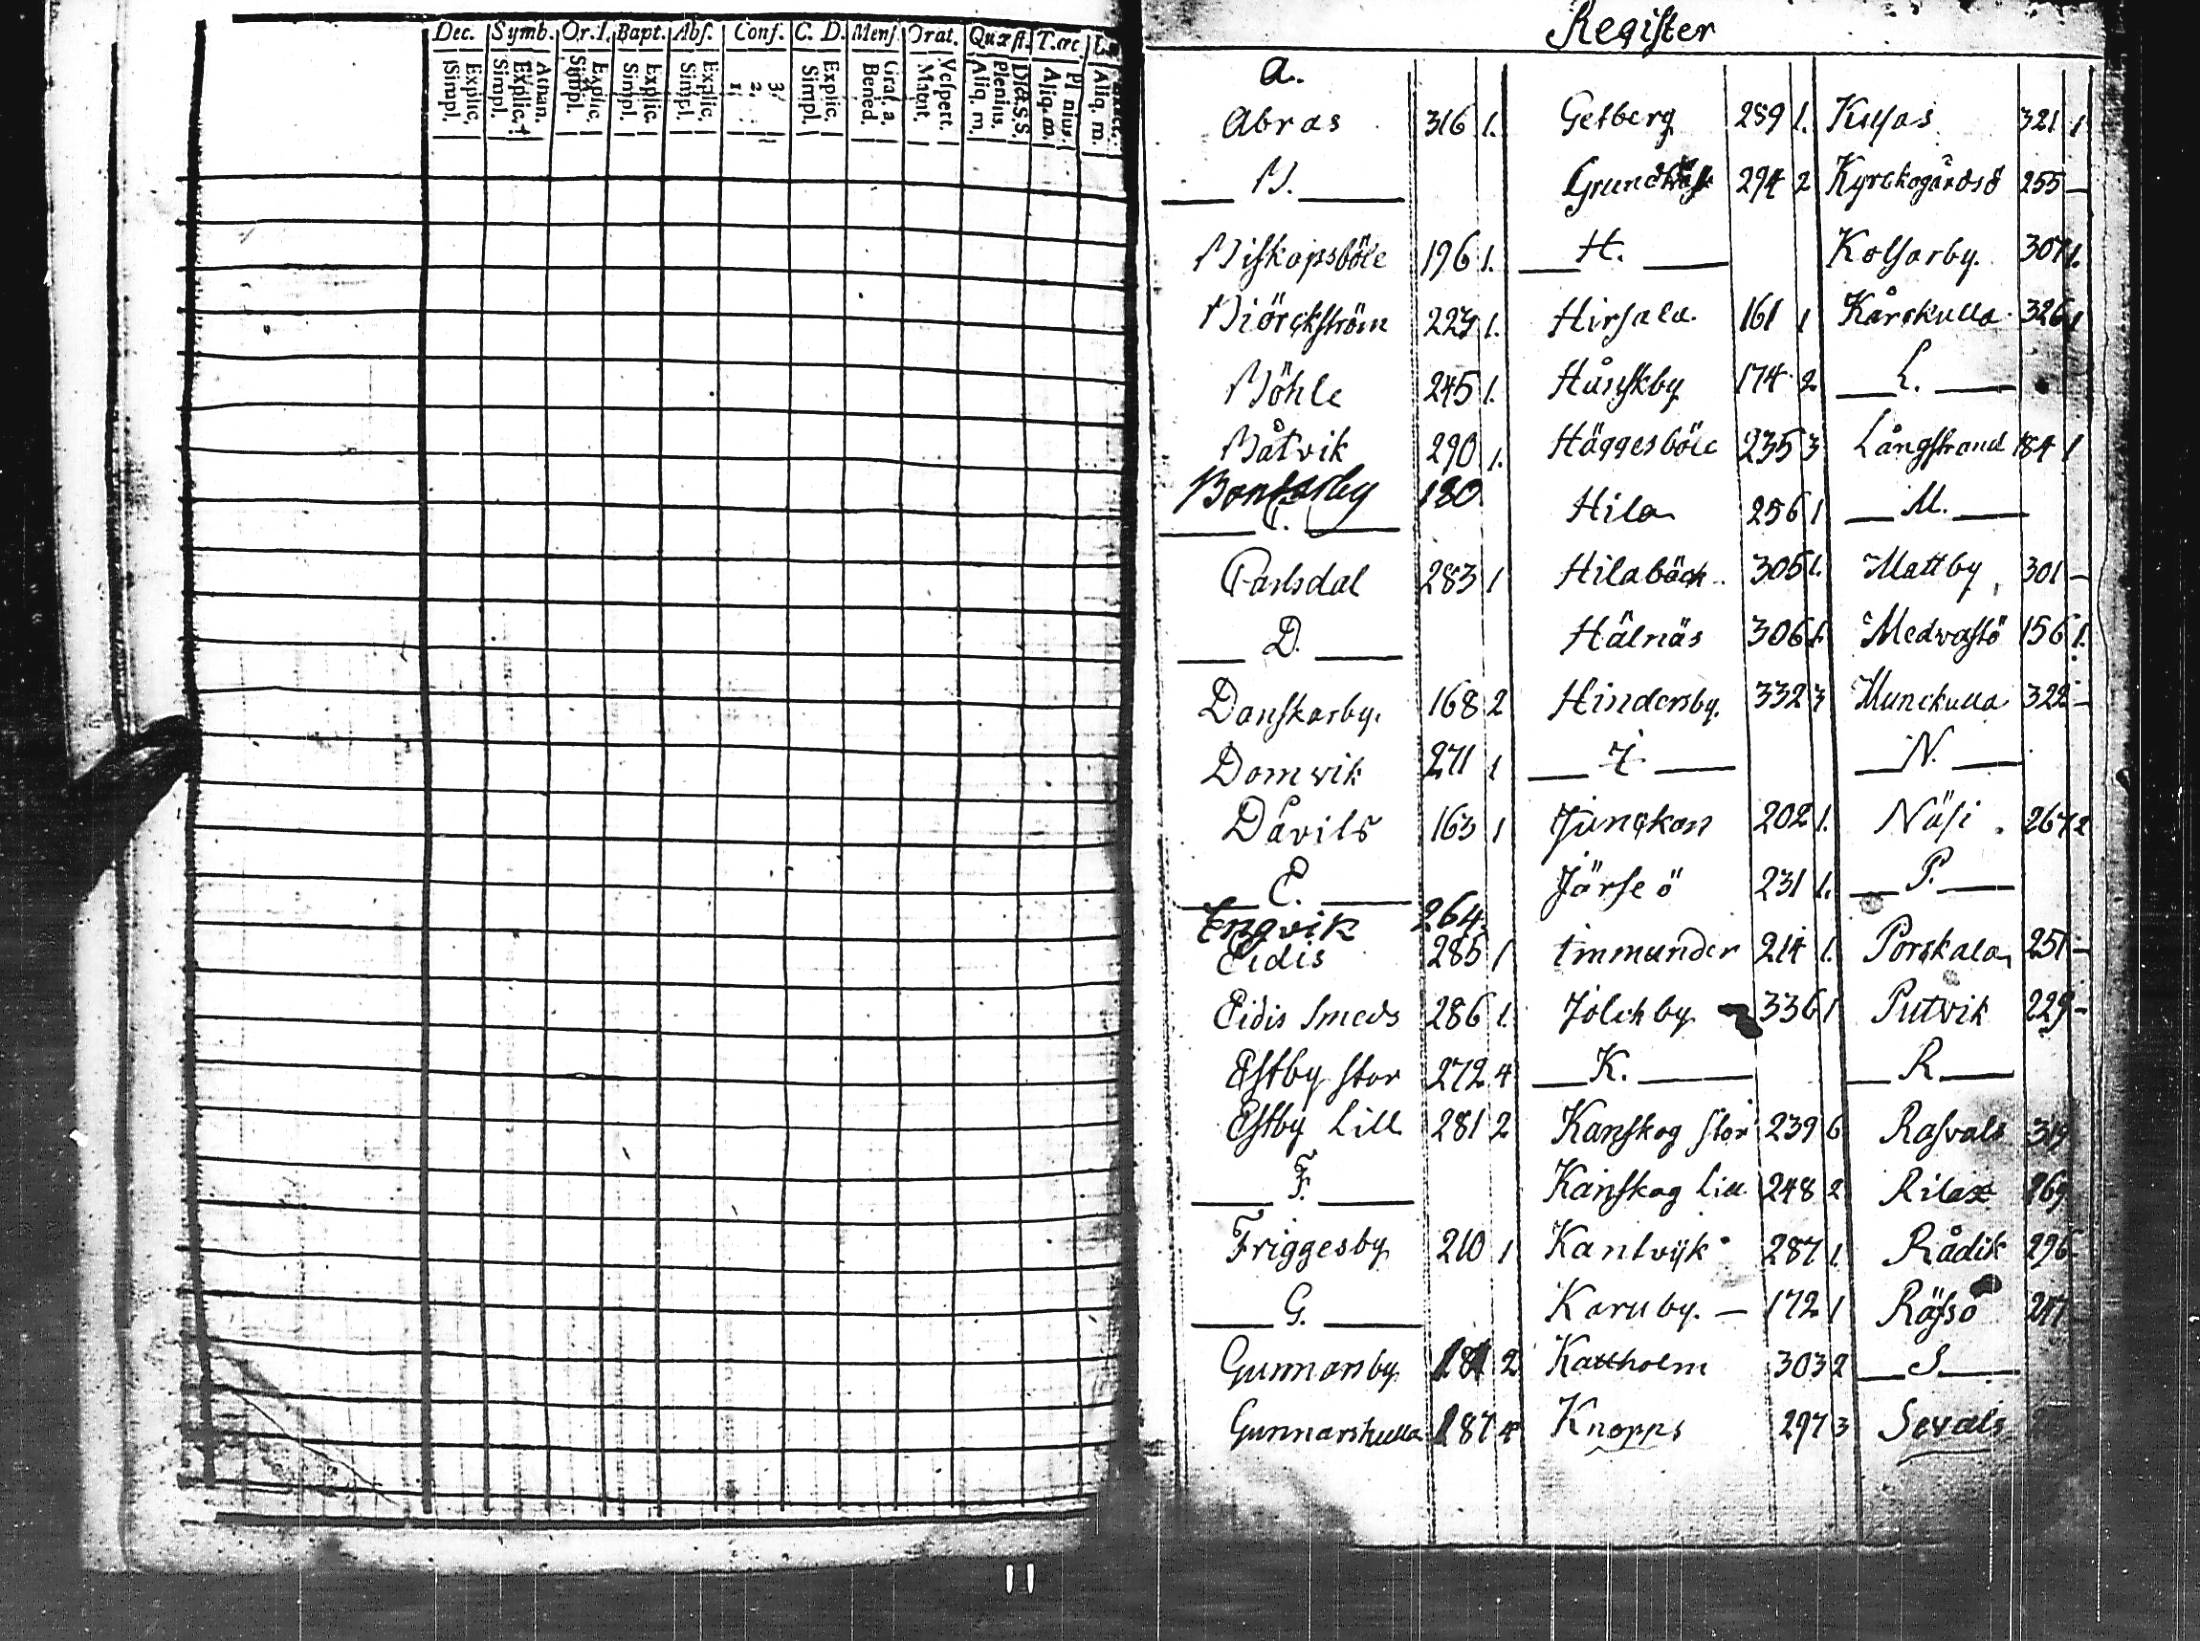 Dec. Symb. Or. D. Bapt. Abs. Conf. C. D. Mens. Orat. Quæst. T. œc.
Explic. Simpl.
Athan. Explic. Simpl.
Explic. Simpl.
Explic. Simpl.
Explic. Simpl.
3. 2. 1.
Explic. Simpl.
Grat. a. Bened.
Vespert. Matut.
D. S. S. Plenius. Aliq. m.
Plenius. Aliq. m.
Aliq. m.
Register
A.
Abras 316 1.
B.
Biskopsböle 196 1.
Biörckström 223 1.
Böhle 245 1.
Båtvik 290 1.
Bonsarby 180
C.
Carlsdal 283 1
D.
Danskarby. 168 2
Domvik 271 1
Dåvils 163 1
E.
Engvik 264.
Eidis 285 1
Eidis Smeds 286 1.
Estby Stor 272 4
Estby Lill 281 2
F.
Friggesby 210 1
G.
Gunnarsby 181 2
Gunnarskulla 187 4
Getberg 289 1.
294 2
H.
Hirsala. 161 1
Hånskby 174 2
Häggesböle 235 3
Hila 256 1
Hilabäck. 305 1.
Hälnäs 306 1.
Hindersby. 332 3
I.
Junckan 202 1.
Järseö 231 1.
Immunder 214 1.
Jolchby 336 1
K.
Kanskog Stor 239 6
Kanskog Lill 248 2
Kantvijk 287 1.
Karuby. — 172 1
Kattholm 303 2
Knopps 297 3
321 1
Kyrckogårdsö 255 —
Kolsarby. 307 1.
Kårskulla. 326 1
L.
Långstrand 184 1
M.
Mattby 301 —
Medvastö 156 1.
Munckulla 322 —
N.
Näsi. 267 2
P.
Porskala 251 —
Putvik 229 —
R
Rasvals
Rilax
Rådik 296
Räfsö
S
Sevals